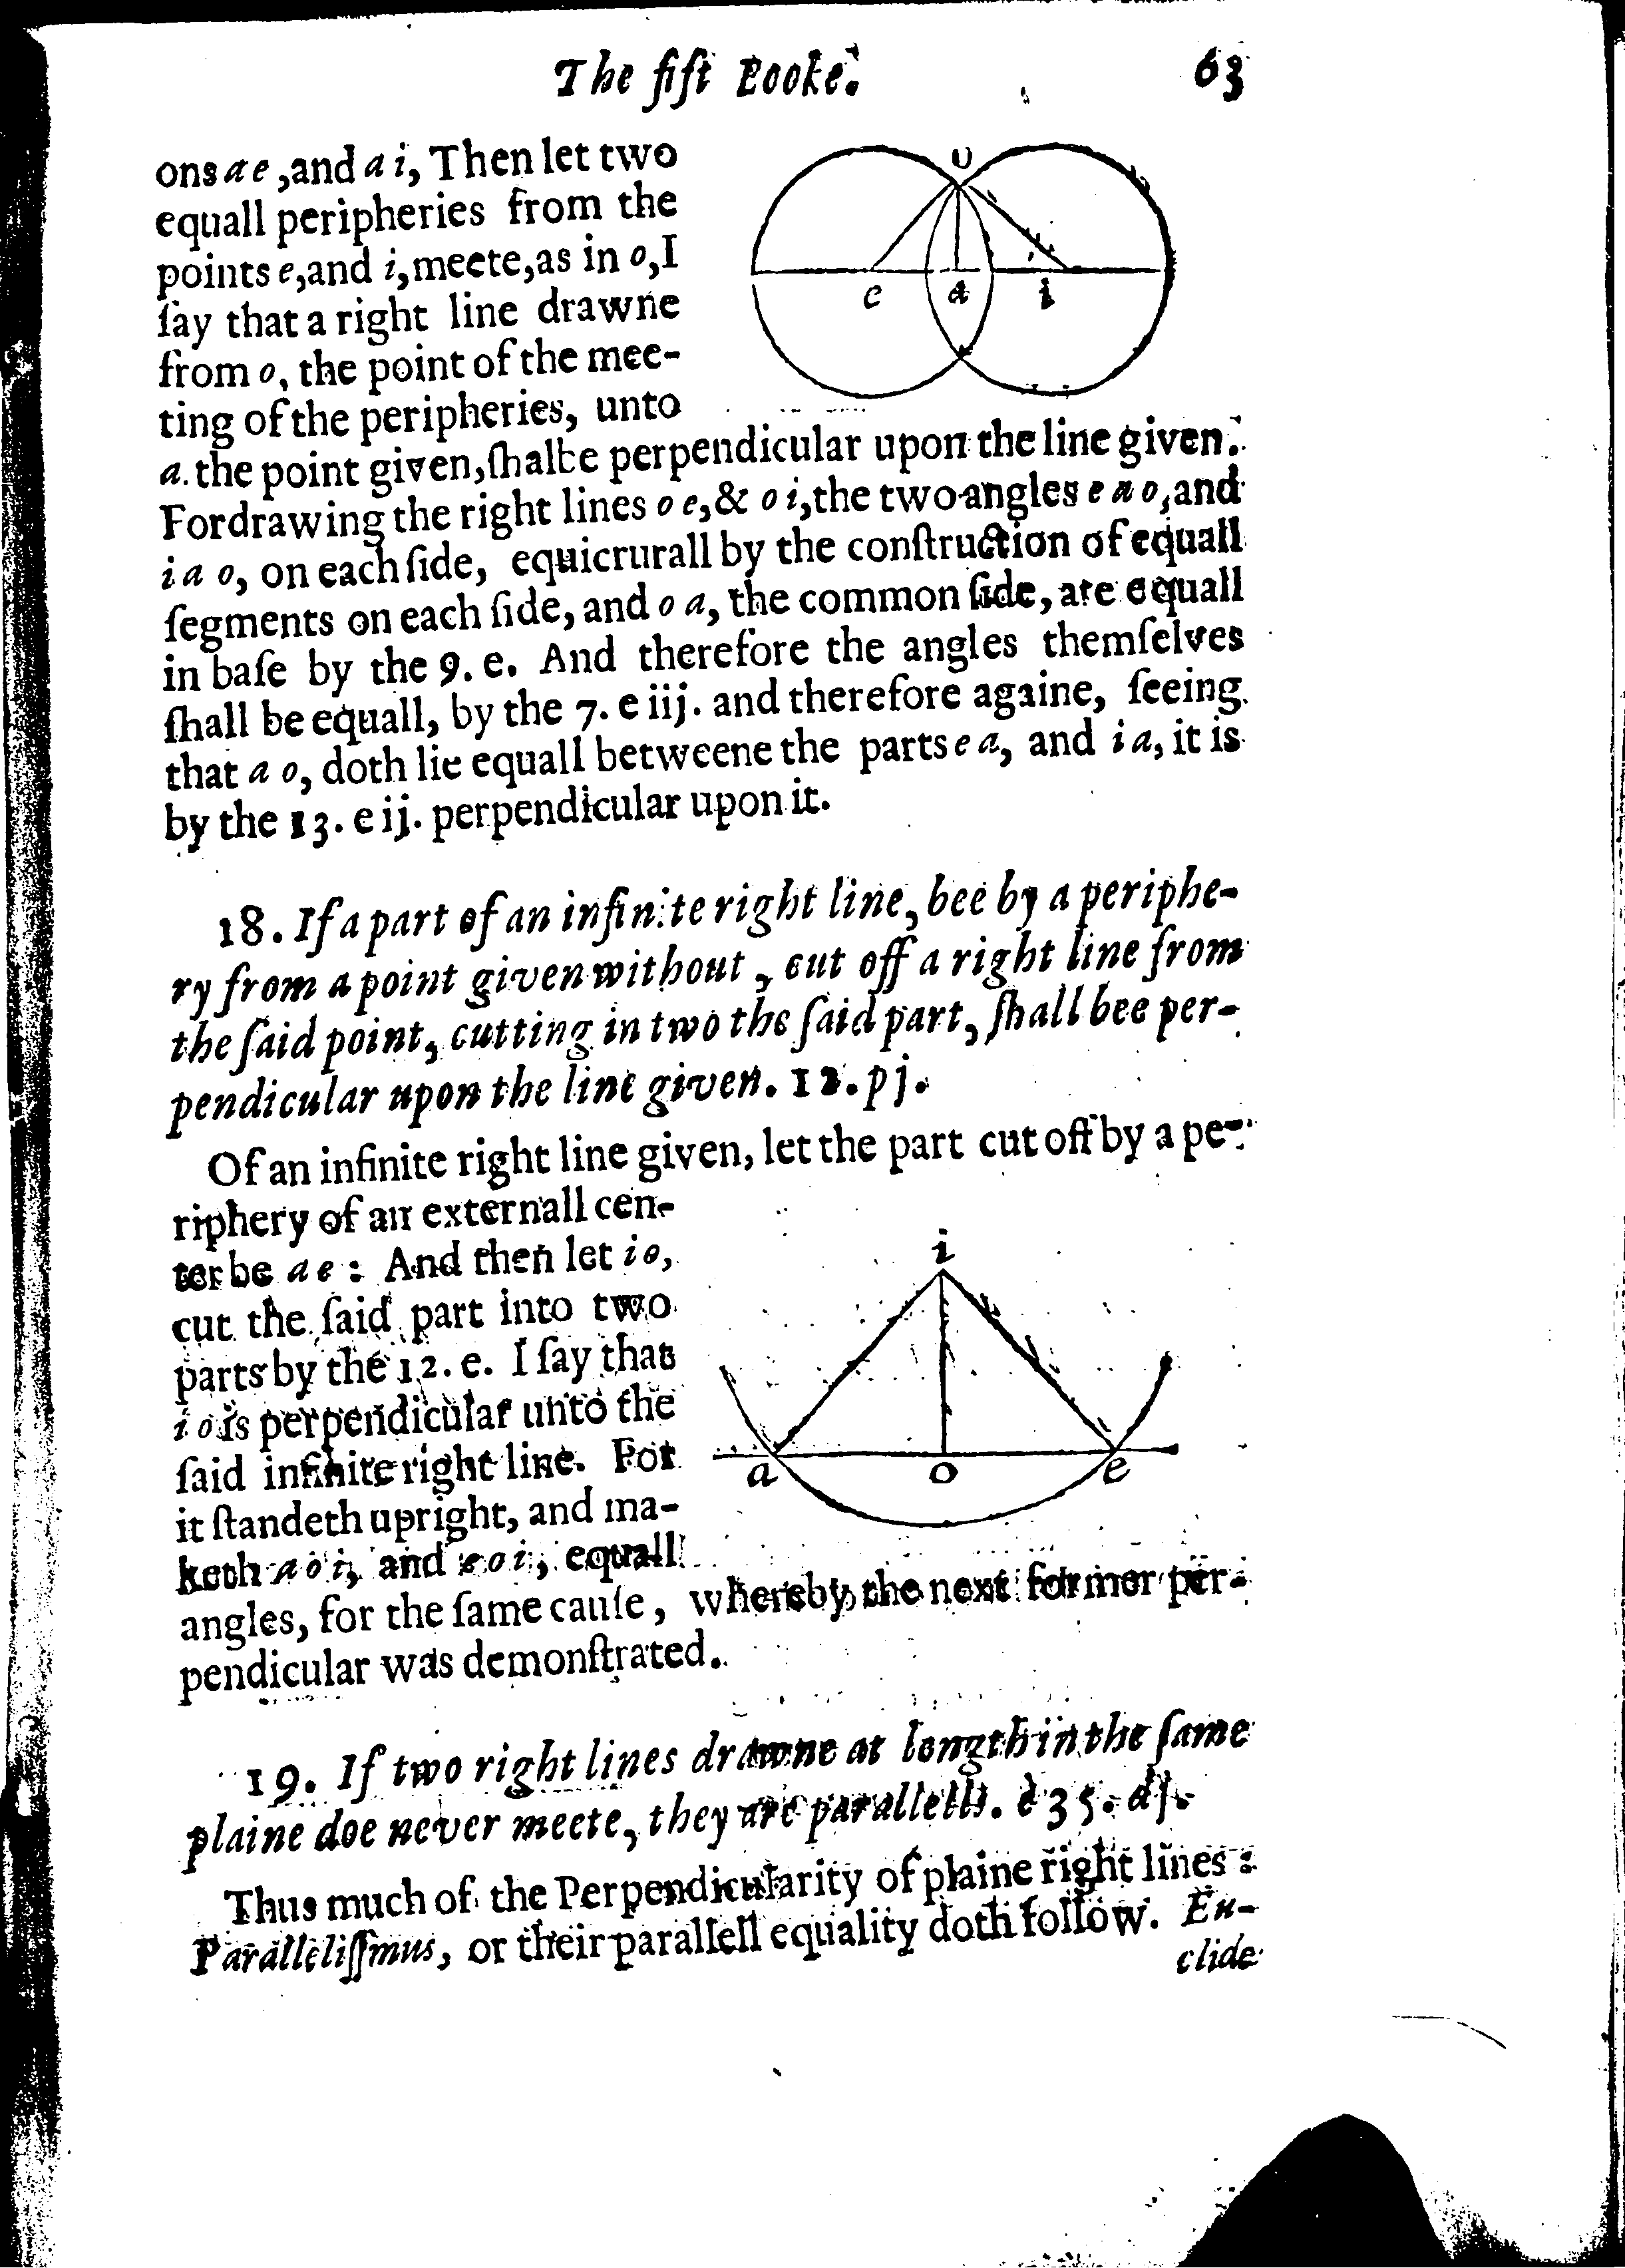 The fift Booke.
63
ons a e, and a i, Then let two
equall peripheries from the
points e, and i, meete, as in o, I
ſay that a right line drawne
from o, the point of the mee-
ting of the peripheries, unto
a. the point given, ſhalbe perpendicular upon the line given.
For drawing the right lines o e, & o i, the two angles e a o, and
i a o, on each ſide, equicrurall by the conſtruction of equall
ſegments on each ſide, and o a, the common ſide, are equall
in baſe by the 9. e. And therefore the angles themſelves
ſhall be equall, by the 7. e iij. and therefore againe, ſeeing
that a o, doth lie equall betweene the parts e a, and i a, it is
by the 13. e ij. perpendicular upon it.
o
e a i
18. If a part of an infinite right line, bee by a periphe-
ry from a point given without, cut off a right line from
the ſaid point, cutting in two the ſaid part, ſhall bee per-
pendicular upon the line given. 12. p j.
Of an infinite right line given, let the part cut off by a pe-
riphery of an externall cen-
ter be a e: And then let i o,
cut the ſaid part into two
parts by the 12. e. I ſay that
i o is perpendicular unto the
ſaid infinite right line. For
it ſtandeth upright, and ma-
keth a o i, and e o i, equall
angles, for the ſame cauſe, whereby the next former per-
pendicular was demonſtrated.
i
a o e
19. If two right lines drawne at length in the ſame
plaine doe never meete, they are parallells. è 35. d j.
Thus much of the Perpendicularity of plaine right lines:
Paralleliſſmus, or their parallell equality doth follow. Eu-
clide